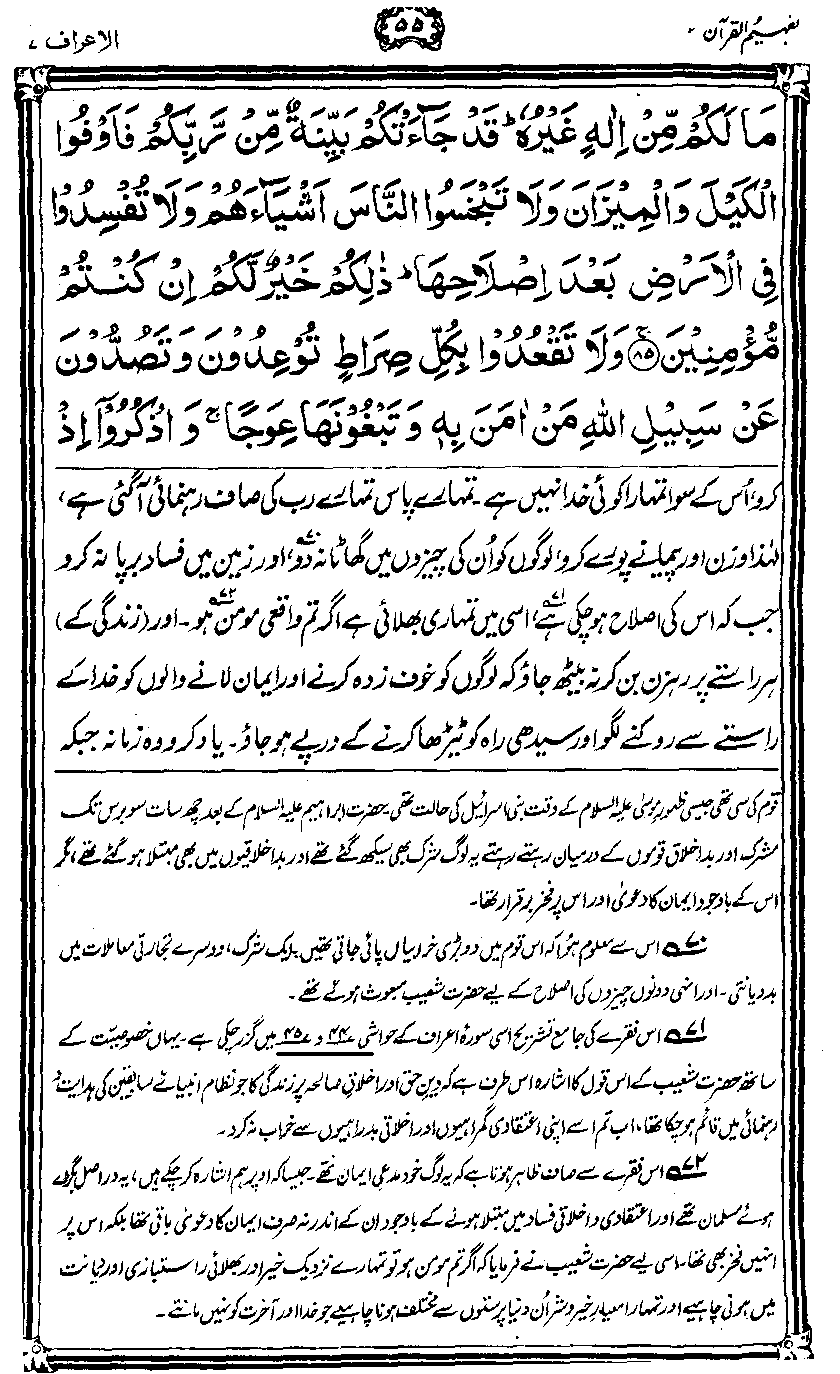 تفہیم القرآن ۲
۵۵
الاعراف ۷
مَا لَكُمْ مِّنْ اِلٰهٍ غَيْرُهٗ ؕ قَدْ جَآءَتْكُمْ بَيِّنَةٌ مِّنْ رَّبِّكُمْ فَاَوْفُوا
الْكَيْلَ وَالْمِيْزَانَ وَلَا تَبْخَسُوا النَّاسَ اَشْيَآءَهُمْ وَلَا تُفْسِدُوْا
فِى الْاَرْضِ بَعْدَ اِصْلَاحِهَا ؕ ذٰلِكُمْ خَيْرٌ لَّكُمْ اِنْ كُنْتُمْ
مُّؤْمِنِيْنَ ﴿۸۵﴾ ۚ وَلَا تَقْعُدُوْا بِكُلِّ صِرَاطٍ تُوْعِدُوْنَ وَتَصُدُّوْنَ
عَنْ سَبِيْلِ اللّٰهِ مَنْ اٰمَنَ بِهٖ وَتَبْغُوْنَهَا عِوَجًا ۚ وَاذْكُرُوْۤا اِذْ
کرو، اُس کے سوا تمہارا کوئی خدا نہیں ہے۔ تمہارے پاس تمہارے رب کی صاف رہنمائی آگئی ہے،
لہٰذا وزن اور پیمانے پورے کرو، لوگوں کو اُن کی چیزوں میں گھاٹا نہ دو،۷۰ اور زمین میں فساد برپا نہ کرو
جب کہ اس کی اصلاح ہو چکی ہے،۷۱ اسی میں تمہاری بھلائی ہے اگر تم واقعی مومن ہو۔۷۲ اور (زندگی کے)
ہر راستے پر رہزن بن کر نہ بیٹھ جاؤ کہ لوگوں کو خوف زدہ کرنے اور ایمان لانے والوں کو خدا کے
راستے سے روکنے لگو اور سیدھی راہ کو ٹیڑھا کرنے کے درپے ہو جاؤ۔ یاد کرو وہ زمانہ جبکہ
قوم کی سی تھی جیسی ظہورِ موسیٰ علیہ السلام کے وقت بنی اسرائیل کی حالت تھی۔ حضرت ابراہیم علیہ السلام کے بعد چھ سات سو برس تک
مشرک اور بداخلاق قوموں کے درمیان رہتے رہتے یہ لوگ شرک بھی سیکھ گئے تھے اور بداخلاقیوں میں بھی مبتلا ہو گئے تھے، مگر
اس کے باوجود ایمان کا دعویٰ اور اس پر فخر برقرار تھا۔
۷۰ اس سے معلوم ہوا کہ اس قوم میں دو بڑی خرابیاں پائی جاتی تھیں۔ ایک شرک، دوسرے تجارتی معاملات میں
بددیانتی۔ اور انہی دونوں چیزوں کی اصلاح کے لیے حضرت شعیب مبعوث ہوئے تھے۔
۷۱ اس فقرے کی جامع تشریح اسی سورۂ اعراف کے حواشی ۴۴ و ۴۵ میں گزر چکی ہے۔ یہاں خصوصیت کے
ساتھ حضرت شعیب کے اس قول کا اشارہ اس طرف ہے کہ دینِ حق اور اخلاقِ صالحہ پر زندگی کا جو نظام انبیائے سابقین کی ہدایت و
رہنمائی میں قائم ہو چکا تھا، اب تم اسے اپنی اعتقادی گمراہیوں اور اخلاقی بدراہیوں سے خراب نہ کرو۔
۷۲ اس فقرے سے صاف ظاہر ہوتا ہے کہ یہ لوگ خود مدعی ایمان تھے۔ جیسا کہ اوپر ہم اشارہ کر چکے ہیں، یہ دراصل بگڑے
ہوئے مسلمان تھے اور اعتقادی و اخلاقی فساد میں مبتلا ہونے کے باوجود ان کے اندر نہ صرف ایمان کا دعویٰ باقی تھا بلکہ اس پر
انہیں فخر بھی تھا۔ اسی لیے حضرت شعیب نے فرمایا کہ اگر تم مومن ہو تو تمہارے نزدیک خیر اور بھلائی راستبازی اور دیانت
میں ہونی چاہیے اور تمہارا معیارِ خیر و شر اُن دنیا پرستوں سے مختلف ہونا چاہیے جو خدا اور آخرت کو نہیں مانتے۔